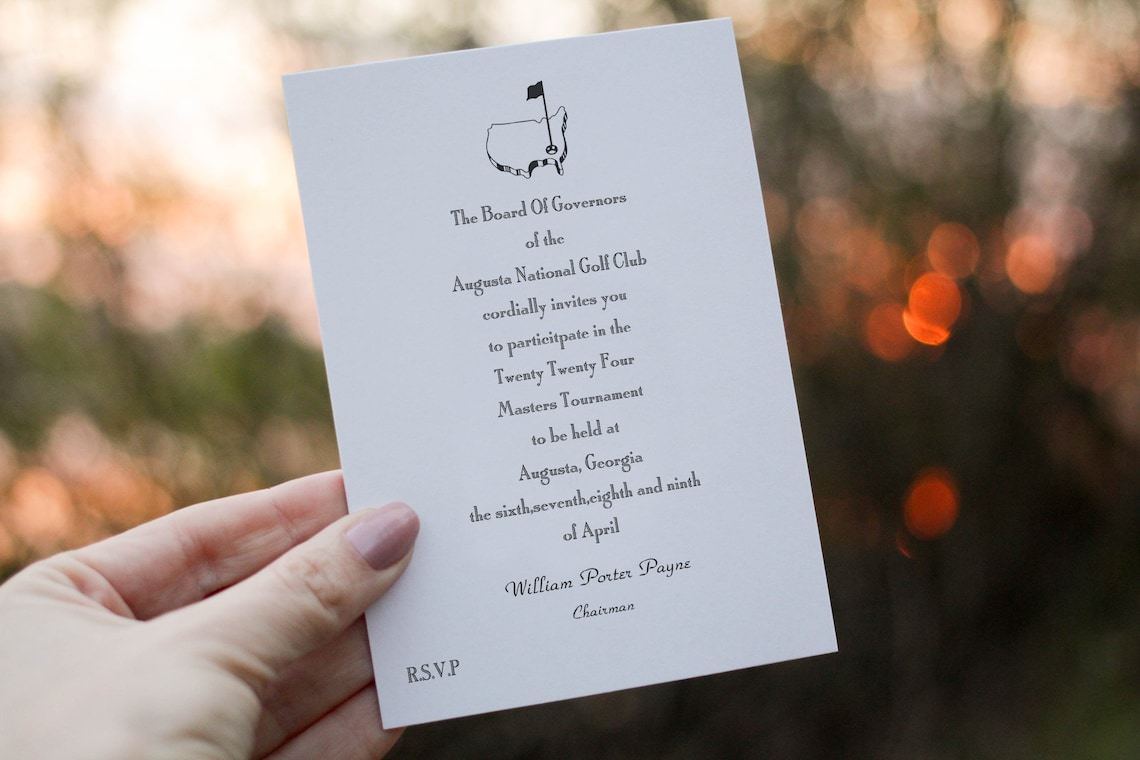 The Board Of Governors
of the
Augusta National Golf Club
cordially invites you
to particitpate in the
Twenty Twenty Four
Masters Tournament
to be held at
Augusta, Georgia
the sixth,seventh,eighth and ninth
of April
William Porter Payne
Chairman
R.S.V.P